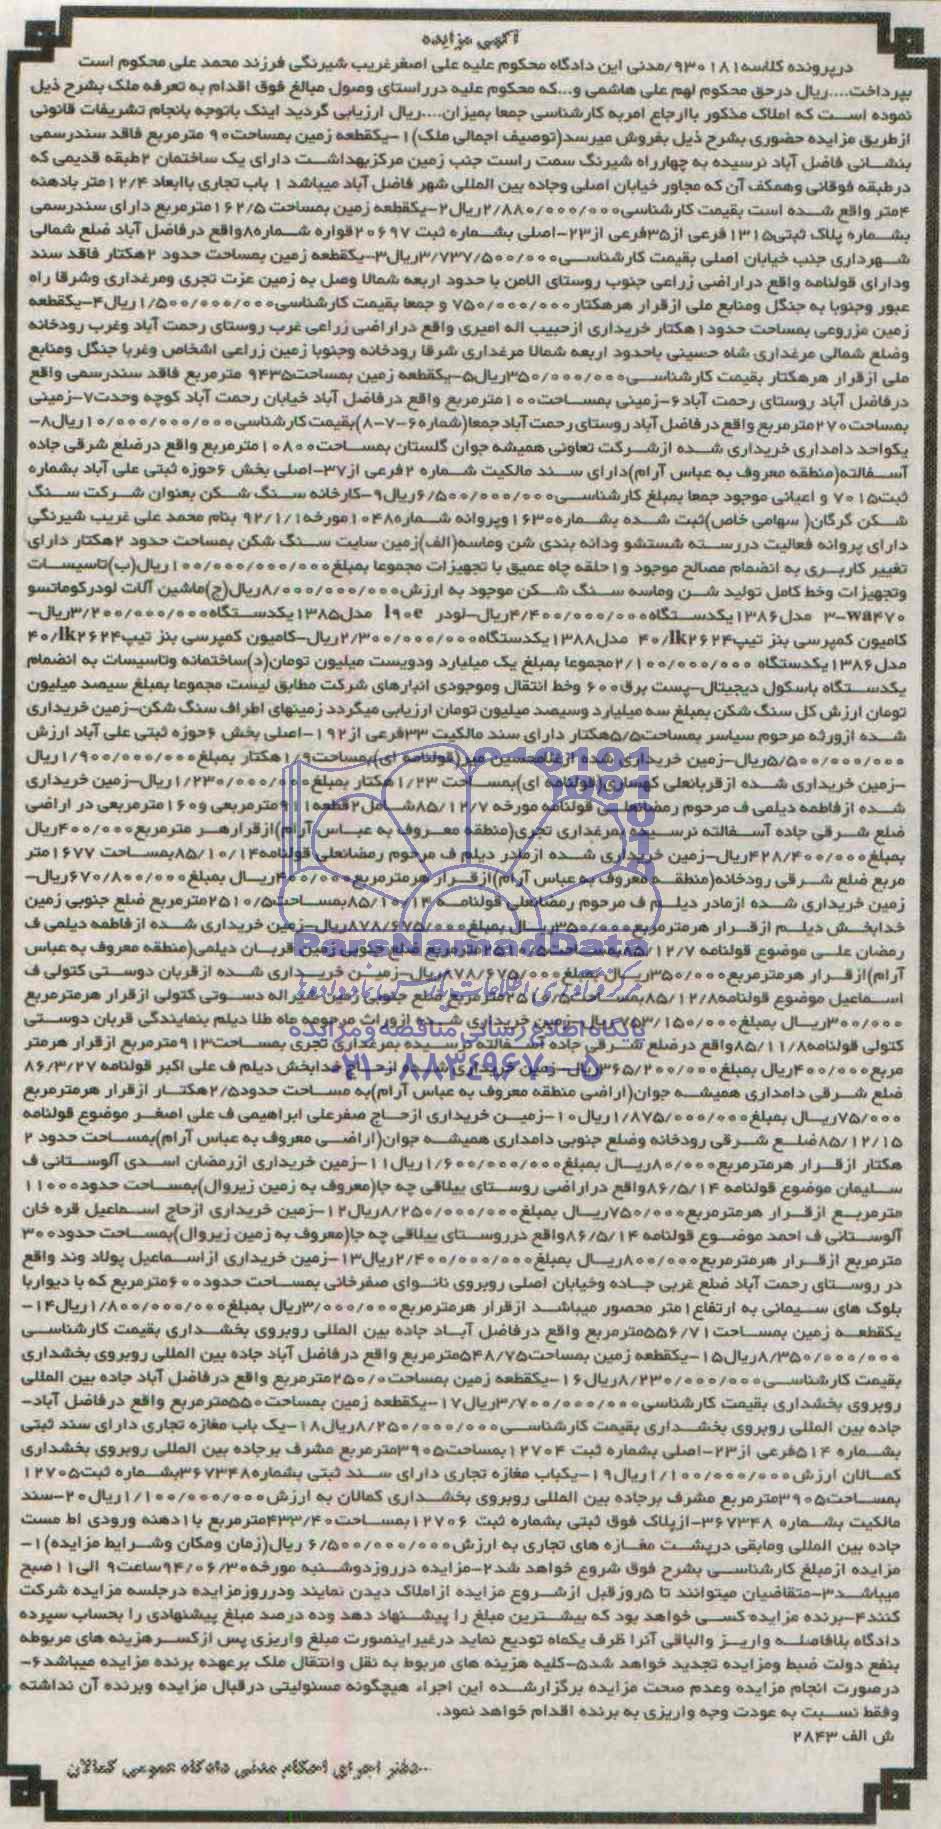 آگهی مزایده
درپرونده کلاسه۹۳۰۱۸۱/مدنی این دادگاه محکوم علیه علی اصغرغریب شیرنگی فرزند محمد علی محکوم است
بپرداخت....ریال درحق محکوم لهم علی هاشمی و...که محکوم علیه درراستای وصول مبالغ فوق اقدام به تعرفه ملک بشرح ذیل
نموده است که املاک مذکور باارجاع امربه کارشناسی جمعا بمیزان....ریال ارزیابی گردید اینک باتوجه بانجام تشریفات قانونی
ازطریق مزایده حضوری بشرح ذیل بفروش میرسد(توصیف اجمالی ملک)۱-یکقطعه زمین بمساحت۹۰ مترمربع فاقد سندرسمی
بنشانی فاضل آباد نرسیده به چهارراه شیرنگ سمت راست جنب زمین مرکزبهداشت دارای یک ساختمان ۲طبقه قدیمی که
درطبقه فوقانی وهمکف آن که مجاور خیابان اصلی وجاده بین المللی شهر فاضل آباد میباشد ۱ باب تجاری باابعاد ۱۲/۴متر بادهنه
۴متر واقع شده است بقیمت کارشناسی۲/۸۸۰/۰۰۰/۰۰۰ریال۲-یکقطعه زمین بمساحت ۱۶۲/۵مترمربع دارای سندرسمی
بشماره پلاک ثبتی۱۳۱۵فرعی از۳۵فرعی از۲۳-اصلی بشماره ثبت ۲۰۶۹۷قواره شماره۸واقع درفاضل آباد ضلع شمالی
شهرداری جنب خیابان اصلی بقیمت کارشناسی۳/۷۳۷/۵۰۰/۰۰۰ریال۳-یکقطعه زمین بمساحت حدود ۲هکتار فاقد سند
ودارای قولنامه واقع دراراضی زراعی جنوب روستای الامن با حدود اربعه شمالا وصل به زمین عزت تجری ومرغداری وشرقا راه
عبور وجنوبا به جنگل ومنابع ملی ازقرار هرهکتار۷۵۰/۰۰۰/۰۰۰ و جمعا بقیمت کارشناسی۱/۵۰۰/۰۰۰/۰۰۰ریال۴-یکقطعه
زمین مزروعی بمساحت حدود۱هکتار خریداری ازحبیب اله امیری واقع دراراضی زراعی غرب روستای رحمت آباد وغرب رودخانه
وضلع شمالی مرغداری شاه حسینی باحدود اربعه شمالا مرغداری شرقا رودخانه وجنوبا زمین زراعی اشخاص وغربا جنگل ومنابع
ملی ازقرار هرهکتار بقیمت کارشناسی۳۵۰/۰۰۰/۰۰۰ریال۵-یکقطعه زمین بمساحت۹۴۳۵ مترمربع فاقد سندرسمی واقع
درفاضل آباد روستای رحمت آباد۶-زمینی بمساحت۱۰۰مترمربع واقع درفاضل آباد خیابان رحمت آباد کوچه وحدت۷-زمینی
بمساحت۲۷۰مترمربع واقع درفاضل آباد روستای رحمت آباد جمعا(شماره۶-۷-۸)بقیمت کارشناسی۱۰/۰۰۰/۰۰۰/۰۰۰ریال۸-
یکواحد دامداری خریداری شده ازشرکت تعاونی همیشه جوان گلستان بمساحت۱۰۸۰۰مترمربع واقع درضلع شرقی جاده
آسفالته(منطقه معروف به عباس آرام)دارای سند مالکیت شماره ۲فرعی از۳۷-اصلی بخش ۶حوزه ثبتی علی آباد بشماره
ثبت۷۰۱۵ و اعیانی موجود جمعا بمبلغ کارشناسی۶/۵۰۰/۰۰۰/۰۰۰ریال۹-کارخانه سنگ شکن بعنوان شرکت سنگ
شکن گرگان( سهامی خاص)ثبت شده بشماره۱۶۳۰وپروانه شماره۱۰۴۸مورخه۹۲/۱/۱ بنام محمد علی غریب شیرنگی
دارای پروانه فعالیت دررسته شستشو ودانه بندی شن وماسه(الف)زمین سایت سنگ شکن بمساحت حدود ۲هکتار دارای
تغییر کاربری به انضمام مصالح موجود و۱حلقه چاه عمیق با تجهیزات مجموعا بمبلغ۱۰۰/۰۰۰/۰۰۰/۰۰۰ریال(ب)تاسیسات
وتجهیزات وخط کامل تولید شن وماسه سنگ شکن موجود به ارزش۸/۰۰۰/۰۰۰/۰۰۰ریال(ج)ماشین آلات لودرکوماتسو
wa۴۷۰-۳ مدل۱۳۸۶یکدستگاه۴/۴۰۰/۰۰۰/۰۰۰ریال-لودر l۹۰e مدل۱۳۸۵یکدستگاه۳/۲۰۰/۰۰۰/۰۰۰ریال-
کامیون کمپرسی بنز تیپ۴۰/lk۲۶۲۴ مدل۱۳۸۸یکدستگاه۲/۳۰۰/۰۰۰/۰۰۰ریال-کامیون کمپرسی بنز تیپ۴۰/lk۲۶۲۴
مدل۱۳۸۶یکدستگاه ۲/۱۰۰/۰۰۰/۰۰۰مجموعا بمبلغ یک میلیارد ودویست میلیون تومان(د)ساختمانه وتاسیسات به انضمام
یکدستگاه باسکول دیجیتال-پست برق۶۰۰ وخط انتقال وموجودی انبارهای شرکت مطابق لیست مجموعا بمبلغ سیصد میلیون
تومان ارزش کل سنگ شکن بمبلغ سه میلیارد وسیصد میلیون تومان ارزیابی میگردد زمینهای اطراف سنگ شکن-زمین خریداری
شده ازورثه مرحوم سیاسر بمساحت۵/۵هکتار دارای سند مالکیت ۳۳فرعی از۱۹۲-اصلی بخش ۶حوزه ثبتی علی آباد ارزش
۵/۵۰۰/۰۰۰/۰۰۰ریال-زمین خریداری شده ازغلامحسین میر(قولنامه ای)بمساحت۱/۹هکتار بمبلغ۱/۹۰۰/۰۰۰/۰۰۰ریال
-زمین خریداری شده ازقربانعلی کهساری(قولنامه ای)بمساحت ۱/۲۳هکتار بمبلغ۱/۲۳۰/۰۰۰/۰۰۰ریال-زمین خریداری
شده ازفاطمه دیلمی ف مرحوم رمضانعلی قولنامه مورخه ۸۵/۱۲/۷شامل۲قطعه۹۱۱مترمربعی و۱۶۰مترمربعی در اراضی
ضلع شرقی جاده آسفالته نرسیده بمرغداری تجری(منطقه معروف به عباس آرام)ازقرارهر مترمربع۴۰۰/۰۰۰ریال
بمبلغ۴۲۸/۴۰۰/۰۰۰ریال-زمین خریداری شده ازمادر دیلم ف مرحوم رمضانعلی قولنامه۸۵/۱۰/۱۴بمساحت ۱۶۷۷متر
مربع ضلع شرقی رودخانه(منطقه معروف به عباس آرام)ازقرار هرمترمربع۴۰۰/۰۰۰ریال بمبلغ۶۷۰/۸۰۰/۰۰۰ریال-
زمین خریداری شده ازمادر دیلم ف مرحوم رمضانعلی قولنامه ۸۵/۱۰/۱۴بمساحت۲۵۱۰/۵مترمربع ضلع جنوبی زمین
خدابخش دیلم ازقرار هرمترمربع۳۵۰/۰۰۰ریال بمبلغ۸۷۸/۶۷۵/۰۰۰ریال-زمین خریداری شده ازفاطمه دیلمی ف
رمضان علی موضوع قولنامه ۸۵/۱۲/۷بمساحت۲۵۱۰/۵مترمربع ضلع جنوبی زمین قربان دیلمی(منطقه معروف به عباس
آرام)ازقرار هرمترمربع۳۵۰/۰۰۰ریال بمبلغ۸۷۸/۶۷۵/۰۰۰ریال-زمین خریداری شده ازقربان دوستی کتولی ف
اسماعیل موضوع قولنامه۸۵/۱۲/۸بمساحت۲۵۱۰/۵مترمربع ضلع جنوبی زمین خیراله دسوتی کتولی ازقرار هرمترمربع
۳۰۰/۰۰۰ریال بمبلغ۷۵۳/۱۵۰/۰۰۰ریال-زمین خریداری شده ازوراث مرحومه ماه طلا دیلم بنمایندگی قربان دوستی
کتولی قولنامه۸۵/۱۱/۸واقع درضلع شرقی جاده آسفالته نرسیده بمرغداری تجری بمساحت۹۱۳مترمربع ازقرار هرمتر
مربع۴۰۰/۰۰۰ریال بمبلغ۳۶۵/۲۰۰/۰۰۰ریال-زمین خریداری شده ازحاج خدابخش دیلم ف علی اکبر قولنامه ۸۶/۳/۲۷
ضلع شرقی دامداری همیشه جوان(اراضی منطقه معروف به عباس آرام)به مساحت حدود۲/۵هکتار ازقرار هرمترمربع
۷۵/۰۰۰ریال بمبلغ۱/۸۷۵/۰۰۰/۰۰۰ریال۱۰-زمین خریداری ازحاج صفرعلی ابراهیمی ف علی اصغر موضوع قولنامه
۸۵/۱۲/۱۵ضلع شرقی رودخانه وضلع جنوبی دامداری همیشه جوان(اراضی معروف به عباس آرام)بمساحت حدود ۲
هکتار ازقرار هرمترمربع۸۰/۰۰۰ریال بمبلغ۱/۶۰۰/۰۰۰/۰۰۰ریال۱۱-زمین خریداری ازرمضان اسدی آلوستانی ف
سلیمان موضوع قولنامه ۸۶/۵/۱۴واقع دراراضی روستای ییلاقی چه جا(معروف به زمین زیروال)بمساحت حدود۱۱۰۰۰
مترمربع ازقرار هرمترمربع۷۵۰/۰۰۰ریال بمبلغ۸/۲۵۰/۰۰۰/۰۰۰ریال۱۲-زمین خریداری ازحاج اسماعیل قره خان
آلوستانی ف احمد موضوع قولنامه ۸۶/۵/۱۴واقع درروستای ییلاقی چه جا(معروف به زمین زیروال)بمساحت حدود۳۰۰۰
مترمربع ازقرار هرمترمربع۸۰۰/۰۰۰ریال بمبلغ۲/۴۰۰/۰۰۰/۰۰۰ریال۱۳-زمین خریداری ازاسماعیل پولاد وند واقع
در روستای رحمت آباد ضلع غربی جاده وخیابان اصلی روبروی نانوای صفرخانی بمساحت حدود۶۰۰مترمربع که با دیواربا
بلوک های سیمانی به ارتفاع۱متر محصور میباشد ازقرار هرمترمربع۳/۰۰۰/۰۰۰ریال بمبلغ۱/۸۰۰/۰۰۰/۰۰۰ریال۱۴-
یکقطعه زمین بمساحت۵۵۶/۷۱مترمربع واقع درفاضل آباد جاده بین المللی روبروی بخشداری بقیمت کارشناسی
۸/۳۵۰/۰۰۰/۰۰۰ریال۱۵-یکقطعه زمین بمساحت۵۴۸/۷۵مترمربع واقع درفاضل آباد جاده بین المللی روبروی بخشداری
بقیمت کارشناسی۸/۲۳۰/۰۰۰/۰۰۰ریال۱۶-یکقطعه زمین بمساحت۲۵۰/۰مترمربع واقع درفاضل آباد جاده بین المللی
روبروی بخشداری بقیمت کارشناسی۳/۷۰۰/۰۰۰/۰۰۰ریال۱۷-یکقطعه زمین بمساحت۵۵۰مترمربع واقع درفاضل آباد-
جاده بین المللی روبروی بخشداری بقیمت کارشناسی۸/۲۵۰/۰۰۰/۰۰۰ریال۱۸-یک باب مغازه تجاری دارای سند ثبتی
بشماره ۵۱۴فرعی از۲۳-اصلی بشماره ثبت ۱۲۷۰۴بمساحت۳۹۰۵مترمربع مشرف برجاده بین المللی روبروی بخشداری
کمالان ارزش۱/۱۰۰/۰۰۰/۰۰۰ریال۱۹-یکباب مغازه تجاری دارای سند ثبتی بشماره۳۶۷۳۴۸بشماره ثبت۱۲۷۰۵
بمساحت۳۹۰۵مترمربع مشرف برجاده بین المللی روبروی بخشداری کمالان به ارزش۱/۱۰۰/۰۰۰/۰۰۰ریال۲۰-سند
مالکیت بشماره ۳۶۷۳۴۸-ازپلاک فوق ثبتی بشماره ثبت ۱۲۷۰۶بمساحت۴۳۳/۴۰مترمربع با۱دهنه ورودی اط مست
جاده بین المللی ومابقی درپشت مغازه های تجاری به ارزش۶/۵۰۰/۰۰۰/۰۰۰ ریال(زمان ومکان وشرایط مزایده)۱-
مزایده ازمبلغ کارشناسی بشرح فوق شروع خواهد شد۲-مزایده درروزدوشنبه مورخه۹۴/۰۶/۳۰ساعت۹ الی۱۱صبح
میباشد۳-متقاضیان میتوانند تا ۵روزقبل ازشروع مزایده ازاملاک دیدن نمایند ودرروزمزایده درجلسه مزایده شرکت
کنند۴-برنده مزایده کسی خواهد بود که بیشترین مبلغ را پیشنهاد دهد وده درصد مبلغ پیشنهادی را بحساب سپرده
دادگاه بلافاصله واریز والباقی آنرا ظرف یکماه تودیع نماید درغیراینصورت مبلغ واریزی پس ازکسرهزینه های مربوطه
بنفع دولت ضبط ومزایده تجدید خواهد شد۵-کلیه هزینه های مربوط به نقل وانتقال ملک برعهده برنده مزایده میباشد۶-
درصورت انجام مزایده وعدم صحت مزایده برگزارشده این اجراء هیچگونه مسئولیتی درقبال مزایده وبرنده آن نداشته
وفقط نسبت به عودت وجه واریزی به برنده اقدام خواهد نمود.
ش الف ۲۸۴۳
...دفتر اجرای احکام مدنی دادگاه عمومی کمالان
ParsNamadData
مرکز فرآوری اطلاعات پارس نماد داده ها
پایگاه اطلاع رسانی مناقصه و مزایده
۰۲۱-۸۸۳۴۹۶۷۰-۵